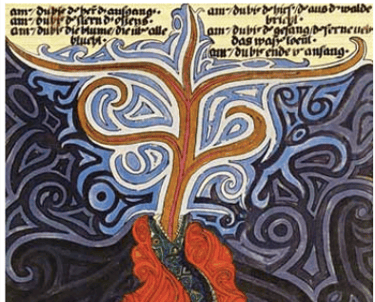 am/ du bist d' her d' anfang·
am/ du bist d' stern d' ostens·
am/ du bist die blume die üb' alle
blueht·
am/ du bist d' hirs/ d' aus d' walde
bricht·
am/ du bist d' gesang/ d' ferne üb'
das wasser toent·
am/ du bist ende u' anfang·